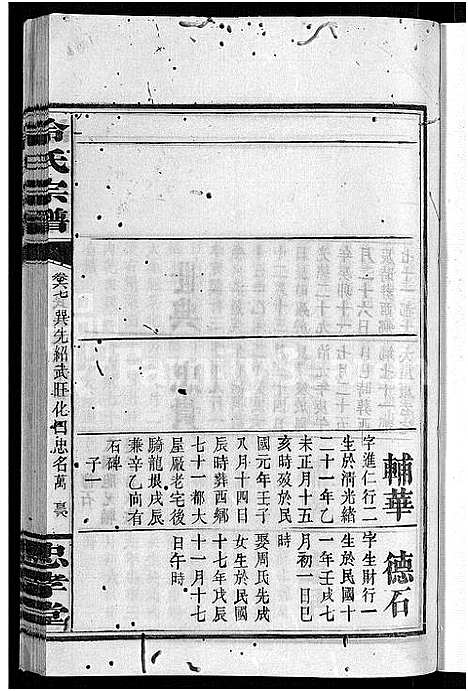 冷氏宗譜
卷六七 巽先紹武旺化 忠名萬
忠孝堂
輔華
字進仁行二
生於淸光緒
二十一年乙
未正月十五
亥時歿於民
國元年壬子
八月十四日
辰時葬西鄉
七十一都大
屋嚴老宅後
騎龍垠戌辰
兼辛乙向有
石碑
子一
德石
字生財行一
生於民國十
一年壬戌七
月初一日巳
時
娶周氏先戌
女生於民國
十七年戊辰
十一月十七
日午時